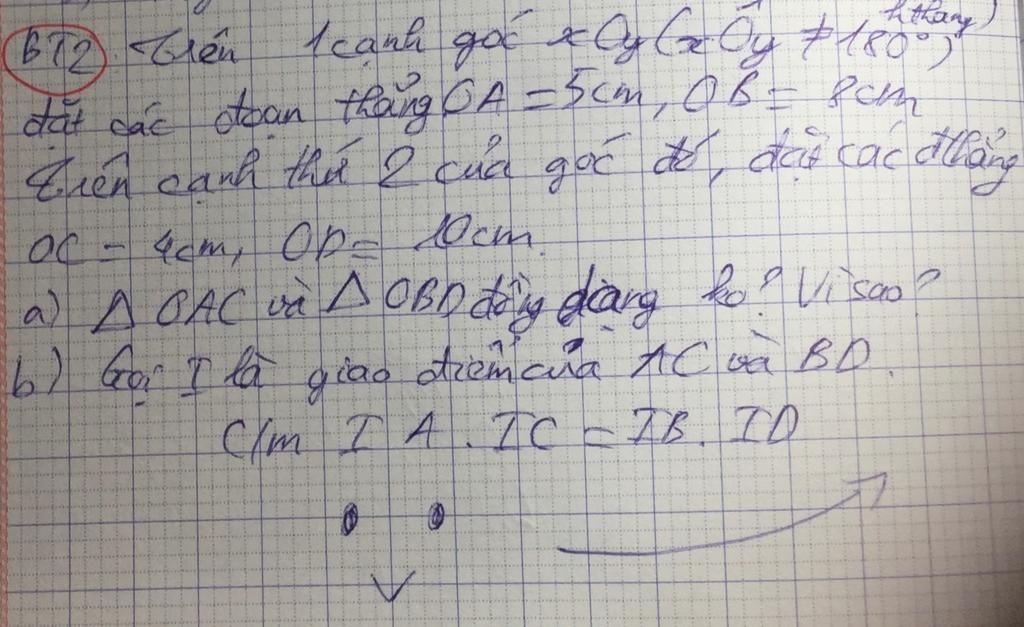 h thang)
BT2. Trên 1 cạnh góc xOy (xÔy ≠ 180°)
đặt các đoạn thẳng OA = 5cm, OB = 8cm
Trên cạnh thứ 2 của góc đó, đặt các đthẳng
OC = 4cm, OD = 10cm.
a) Δ OAC và Δ OBD đồng dạng ko? Vì sao?
b) Gọi I là giao điểm của AC và BD.
C/m IA. IC = IB. ID